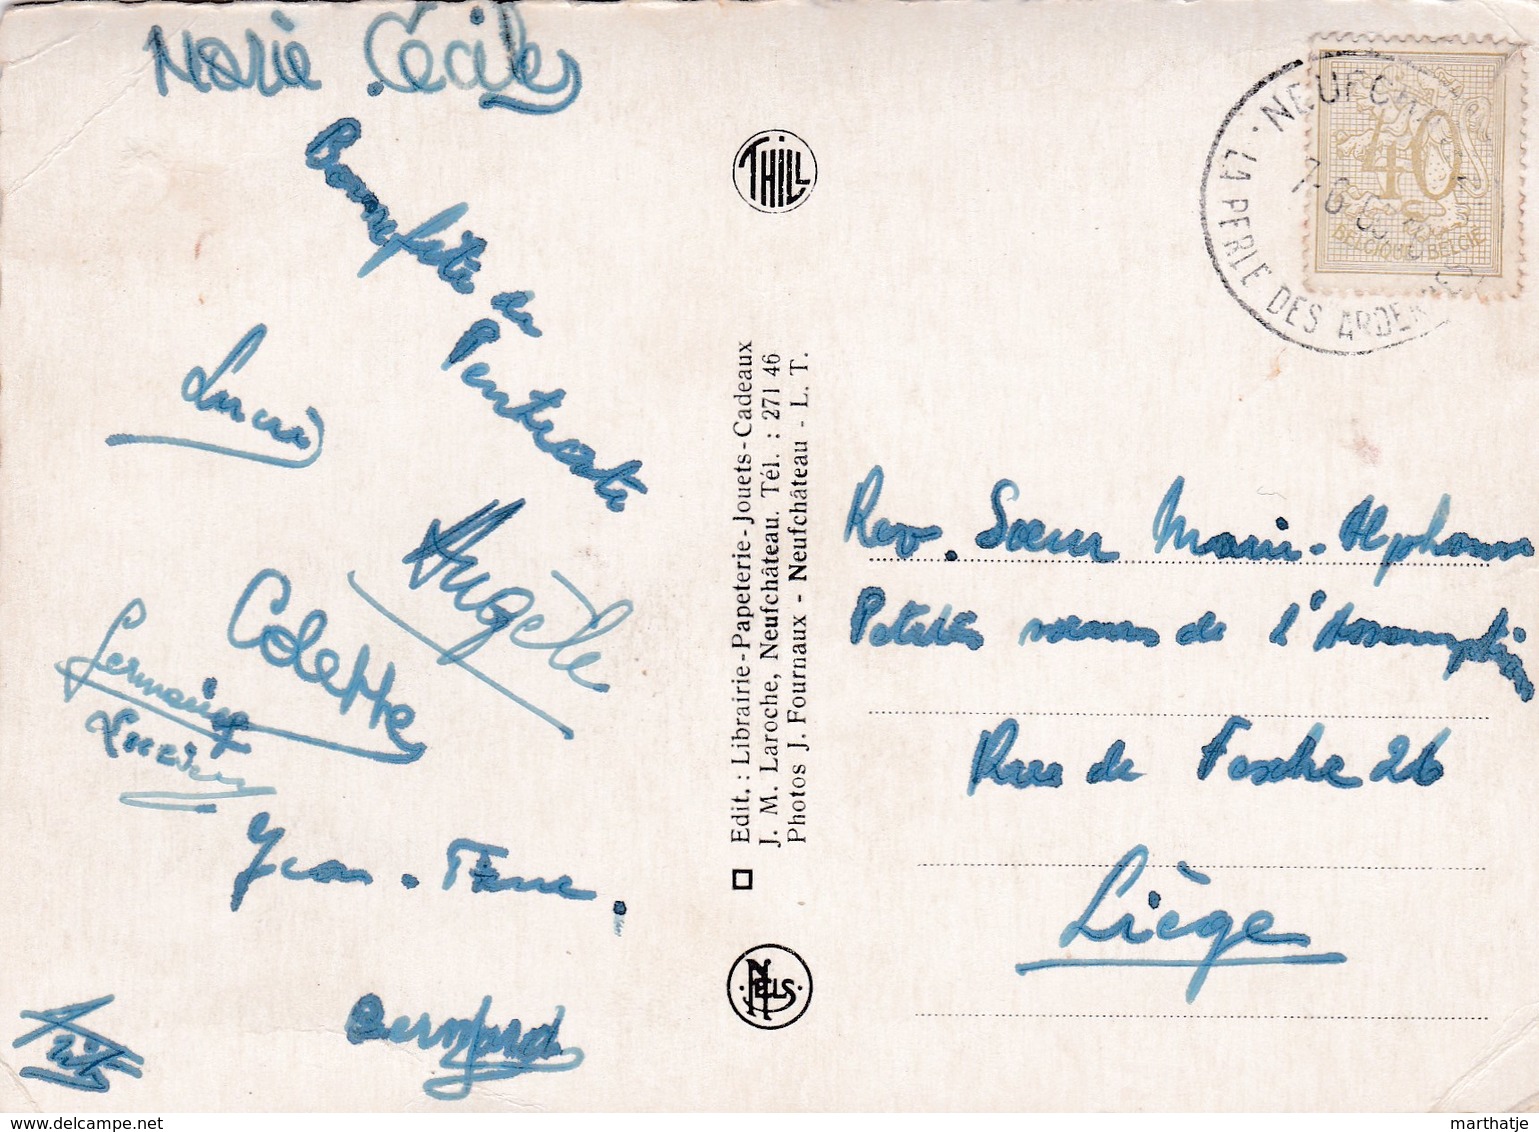 Marie Cécile
Bonne fête de
Pentecôte
Lucie
Angèle
Colette
Germaine
Lucien
Jean-Pierre.
Bernard
Rita
THILL
Edit. : Librairie-Papeterie-Jouets-Cadeaux
J. M. Laroche, Neufchâteau. Tél. : 271 46
Photos J. Fournaux - Neufchâteau - L. T.
NELS
LA PERLE DES ARDENNES
7-6
40
BELGIQUE BELGIË
Rev. Sœur Marie-Alphonse
Petites sœurs de l'Assomption
Rue de Fexhe 26
Liège
marthatje
www.delcampe.net